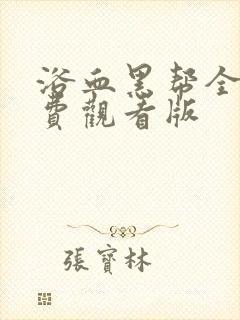 浴血黑帮全
費觀看版
張寶林